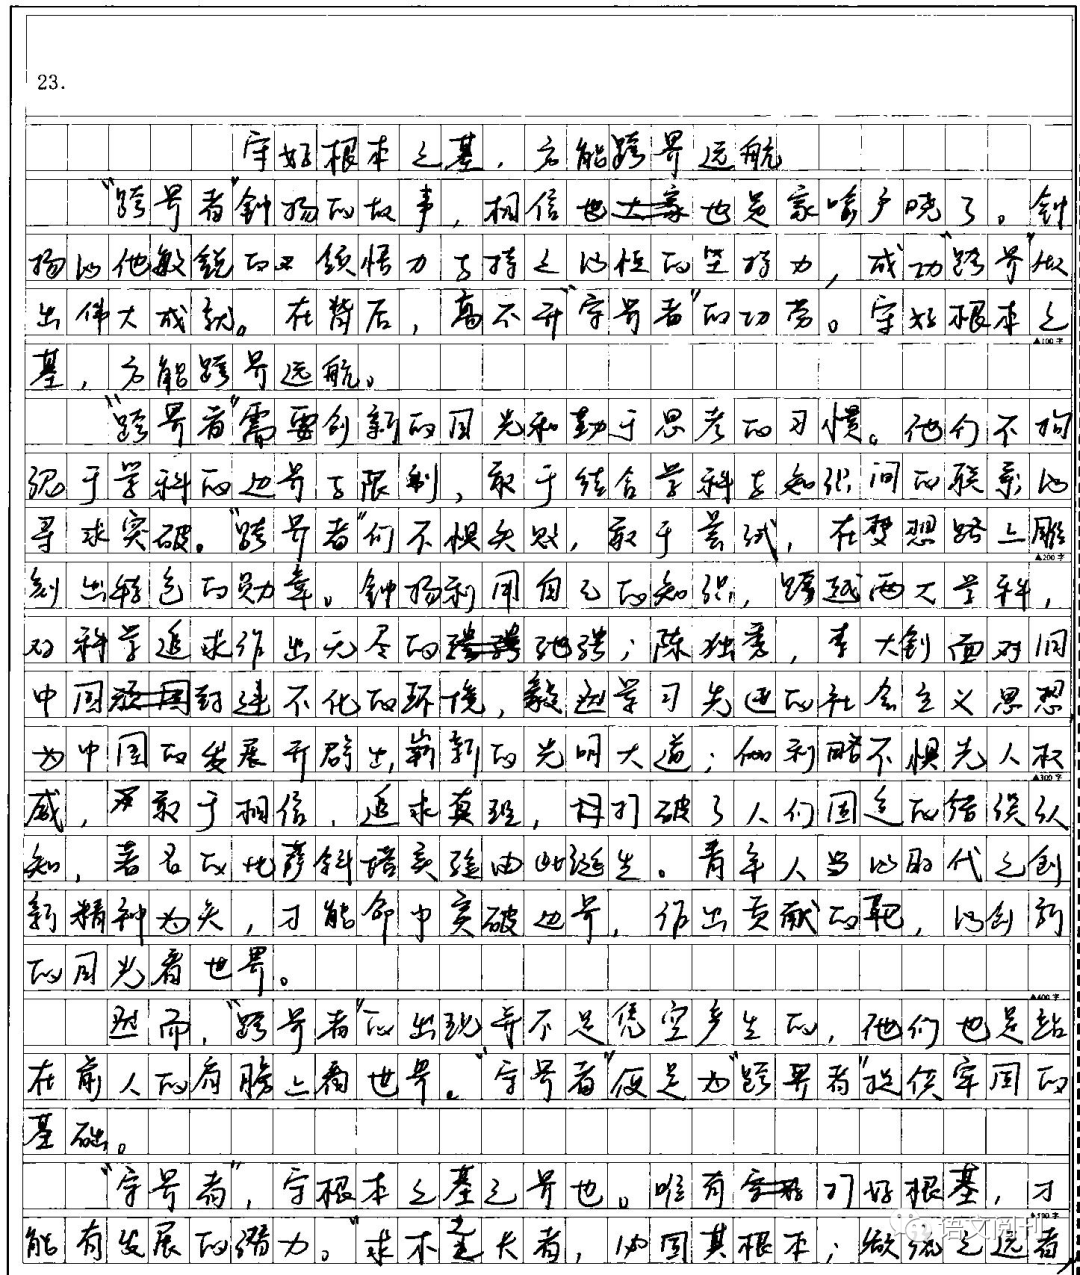 23.
守好根本之基,方能跨界远航
“跨界者”钟扬的故事,相信也大家也是家喻户晓了。钟
扬以他敏锐的领悟力与持之以恒的坚持力,成功“跨界”做
出伟大成就。在背后,离不开“守界者”的功劳。守好根本之
▲100字
基,方能跨界远航。
“跨界者”需要创新的目光和勤于思考的习惯。他们不拘
泥于学科的边界与限制,敢于结合学科与知识间的联系以
寻求突破。“跨界者”们不惧失败,敢于尝试,在梦想路上雕
▲200字
刻出特色的勋章。钟扬利用自己的知识,跨越两大学科,
对科学追求作出无尽的驰骋;陈独秀,李大钊面对旧
中国封建不化的环境,毅然学习先进的社会主义思想,
为中国的发展开辟出崭新的光明大道;伽利略不惧先人权
▲300字
威,敢于相信,追求真理,打破了人们固定的错误认
知,著名的比萨斜塔实验由此诞生。青年人当以时代之创
新精神为矢,才能命中突破边界,作出贡献的靶,以创新
的目光看世界。
▲400字
然而,“跨界者”的出现并不是凭空产生的,他们也是站
在前人的肩膀上看世界。“守界者”便是为“跨界者”提供牢固的
基础。
“守界者”,守根本之基之界也。唯有打好根基,才
▲500字
能有发展的潜力。“求木之长者,必固其根本;欲流之远者,
语文阅刊